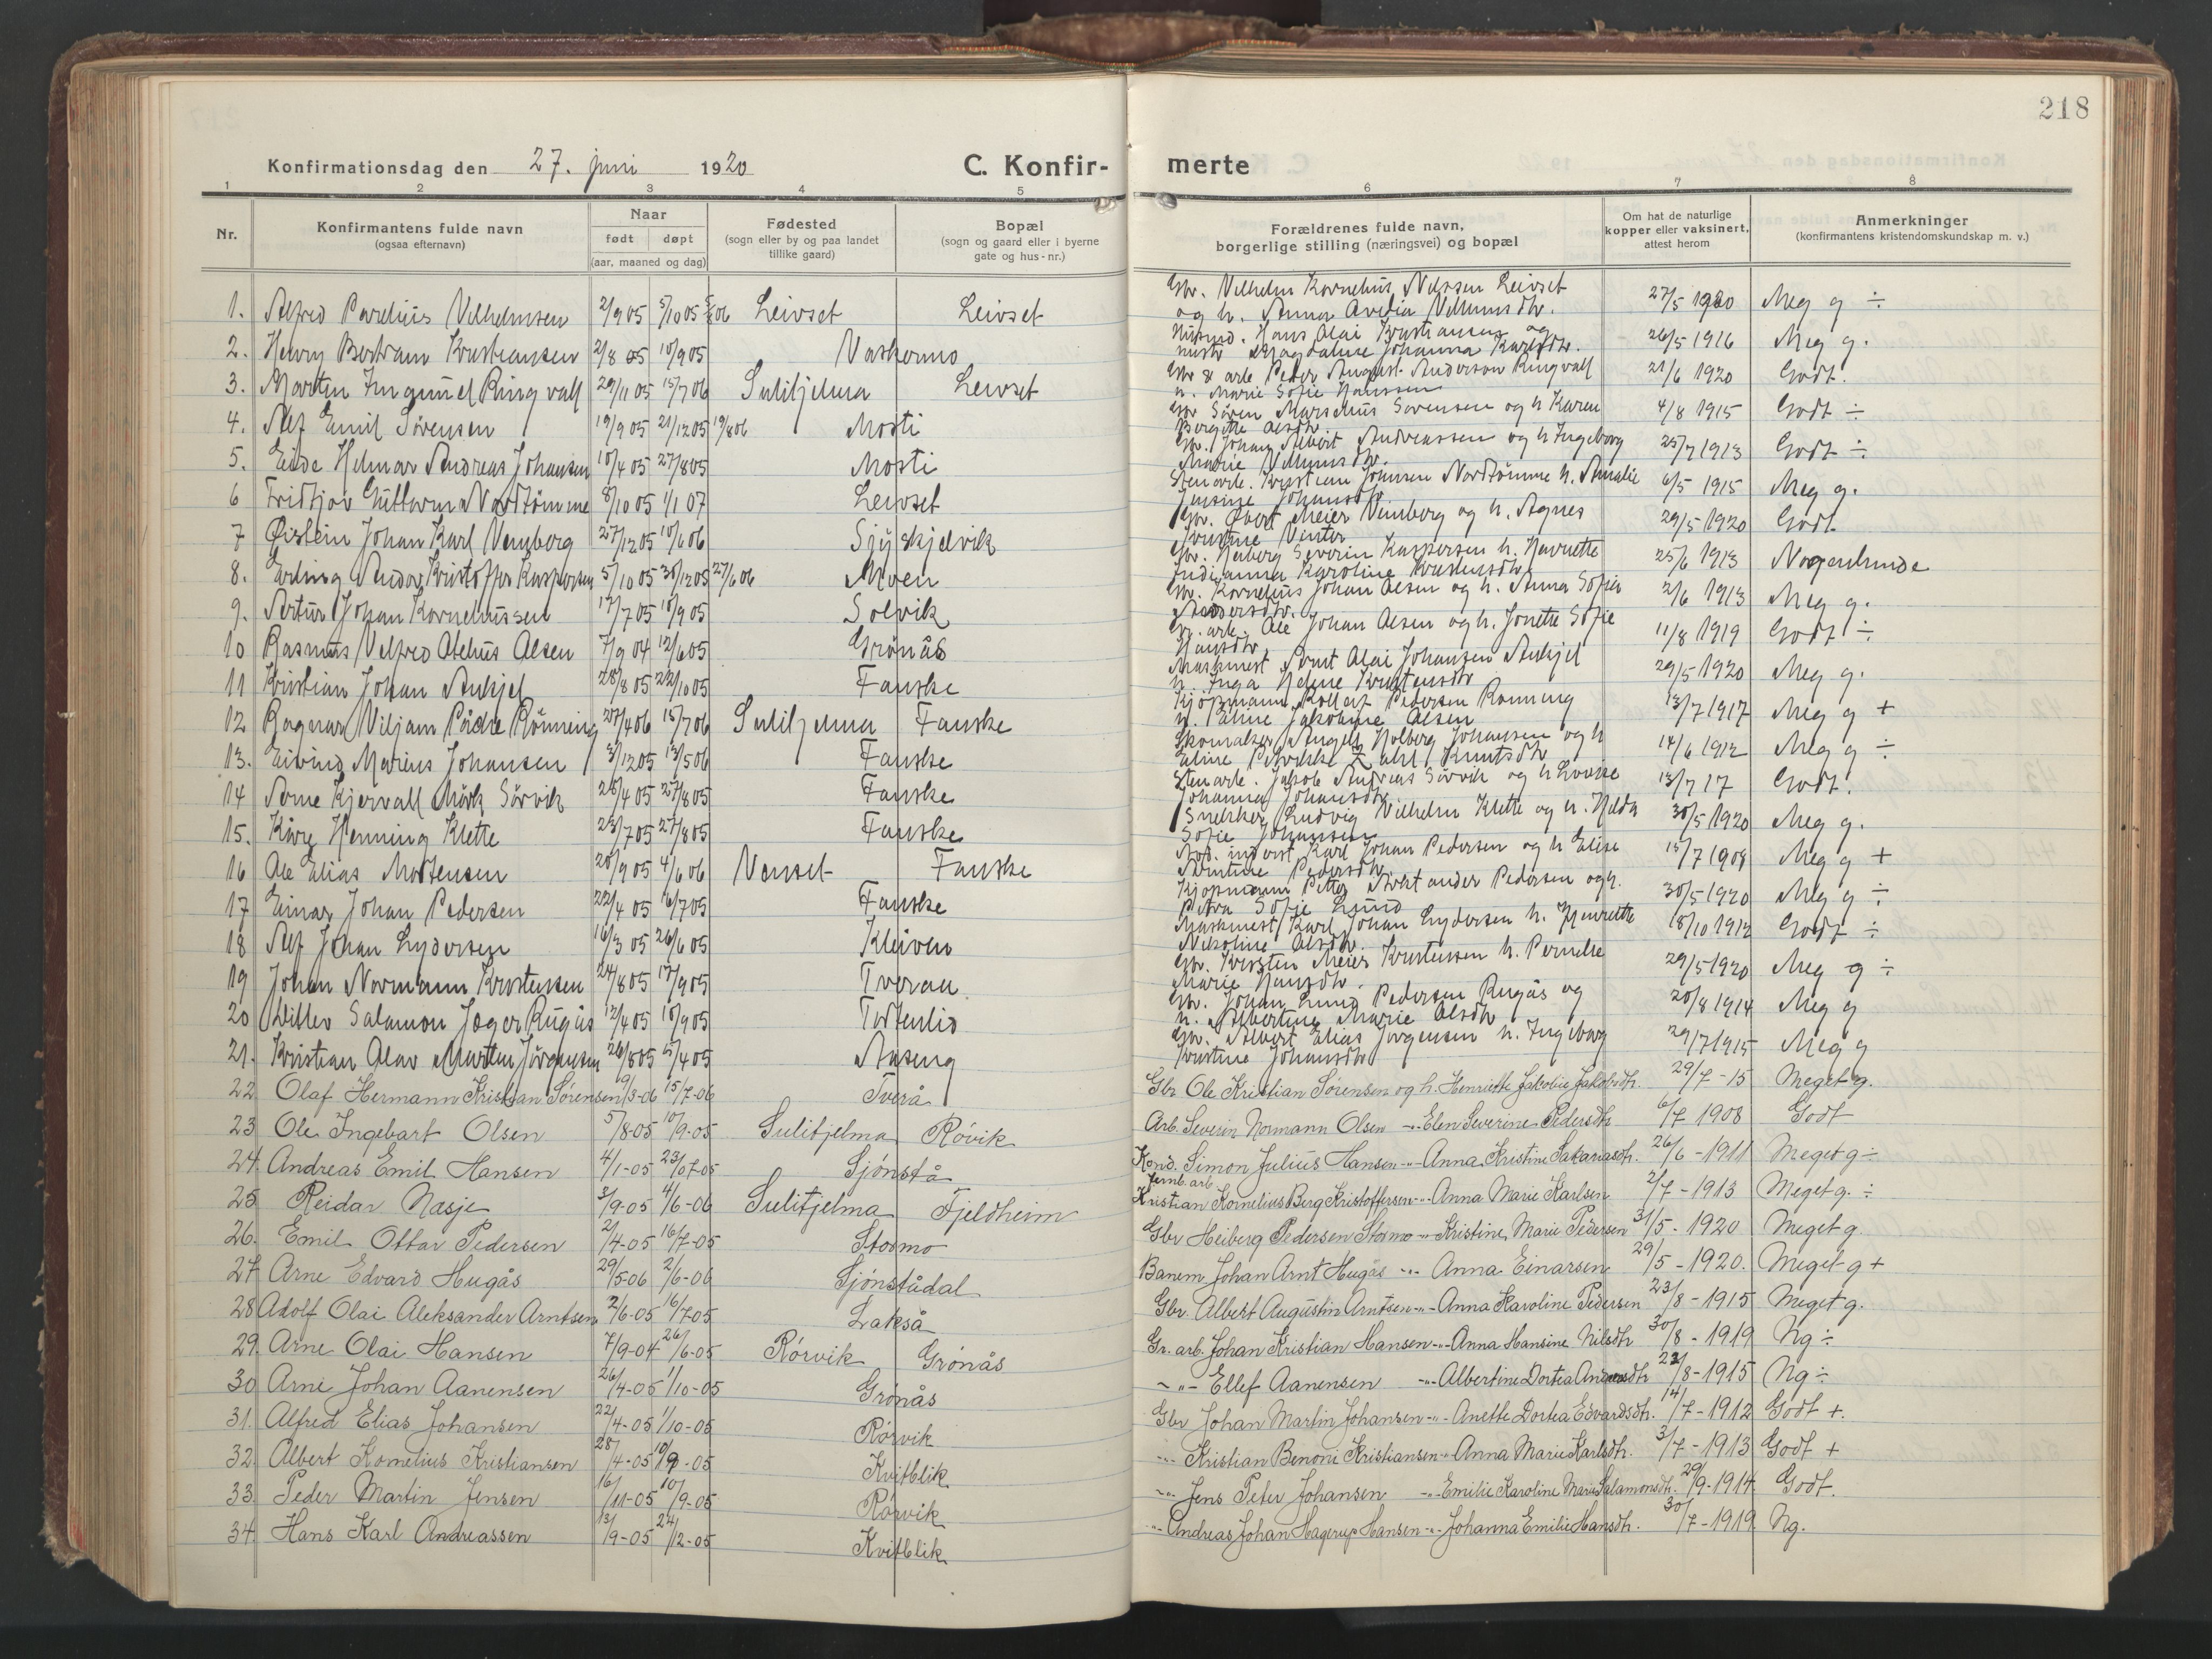 218
Konfirmationsdag den 27. juni 1920
C. Konfir-
merte
1 2 3 4 5 6 7 8
Nr.
Konfirmantens fulde navn
(ogsaa efternavn)
Naar
født døpt
(aar, maaned og dag)
Fødested
(sogn eller by og paa landet
tillike gaard)
Bopæl
(sogn og gaard eller i byerne
gate og hus-nr.)
Forældrenes fulde navn,
borgerlige stilling (næringsvei) og bopæl
Om hat de naturlige
kopper eller vaksinert,
attest herom
Anmerkninger
(konfirmantens kristendomskundskap m. v.)
1. Alfred Parelius Vilhelmsen 2/9 05 5/10 05 Leivset Leivset
Gbr. Vilhelm Kornelius Nilssen Leivset 27/5 1920 Meg g ÷
og h. Anna
2. Henry Bertram Kristiansen 2/8 05 10/9 05
Husmd. Hans Olai Kristiansen og 26/5 1916 Meg g.
hustr Magdaline Johanna Karlsdtr.
3. Morten Ingemel Ringvall 29/11 05 15/7 06 Sulitjelma Leivset
Peter August Anderson Ringvall 21/6 1920 Godt.
h. Marie Sofie Hanssen
4. Alf Emil Sørensen 19/9 05 21/12 05 19/8 06 Mosti
Gbr Søren Marselius Sørensen og h Karen 4/8 1915 Godt ÷
Bergitte Olsdtr.
5. Hilmar Andreas Johansen 10/4 05 27/8 05 Mosti
Gbr. Johan Albert Andreassen og h Ingeborg 25/7 1913 Godt ÷
Marie
6 Fridtjov Guttorm Nordtømme 8/10 05 1/1 07 Leivset
Stenarb. Kristian Johnsen Nordtømme h. Amalie 6/5 1915 Meg g.
Jensine Johansdtr.
7 Øistein Johan Karl Venberg 27/12 05 10/6 06
Gbr. Meier Venberg og h. Agnes 29/5 1920 Godt.
Kristine Vinter
8. Erling Andor Kristoffer Kaspersen 5/10 05 30/12 05 27/6 06 Moen
Gbr. Severin Kaspersen h. 25/6 1913 Nogenlunde
Karoline Kristensdtr
9. Artur Johan Korneliussen 17/7 05 10/9 05 Solvik
Gbr. Kornelius Johan Olsen og h. Anna Sofie 2/6 1913 Meg g.
Andersdtr.
10 Rasmus Vilfred Olsen 7/9 04 12/6 05 Grønås
Gr. arb. Ole Johan Olsen og h. Jonette Sofie 11/8 1919 Godt ÷
Hansdtr
11 Kristian Johan 28/8 05 22/10 05 Fauske
Maskinest. Arnt Olai Johansen 29/5 1920 Meg g.
h. Inga Helene Kristensdtr
12 Ragnar Viljam Rönning 27/4 06 15/7 06 Sulitjelma Fauske
Kjøpmann Pedersen Rønning 13/7 1917 Meg g +
h. Jakobine Olsen
13. Eivind Marius Johansen 3/12 05 13/5 06 Fauske
Skomaker August Holberg Johansen og h 14/6 1912 Meg g ÷
Eline Knutsdtr
14 Arne Kjervall Mörk Sörvik 26/4 05 27/8 05 Fauske
Stenarb. Jakob Andreas Sörvik og h Lovise 13/7 17 Godt.
Johanna Johansdtr
15. Kåre Henning Klette 23/7 05 27/8 05 Fauske
Snekker Ludvig Vilhelm Klette og h. Hilda 30/5 1920 Meg g.
Sofie Johansen
16 Ole Elias Mortensen 20/9 05 4/6 06 Venset Fauske
Karl Johan Pedersen og h Elise 15/7 1908 Meg g +
Pedersdtr.
17 Einar Johan Pedersen 22/4 05 16/7 05 Fauske
Kjøpmann Petter Pedersen og h. 30/5 1920 Meg g ÷
Petra Sofie Lund
18 Alf Johan Lydersen 16/3 05 26/6 05 Kleiven
Maskinest Karl Johan Lydersen h. Henriette 18/10 1912 Godt ÷
Nikoline Olsdtr.
19 Johan Normann Kristensen 24/8 05 17/9 05 Tveraa
Gbr. Kristen Meier Kristensen h. Pernille 29/5 1920 Meg g ÷
Marie Hansdtr.
20 Ditlev Salamon Jæger Rugås 12/4 05 10/9 05
Gbr. Johan Lund Pedersen Rugås og 20/8 1914 Meg g
h. Albertine Marie Olsdtr
21. Kristian Olav Morten Jörgensen 26/8 05 Aaseng
Gbr. Albert Elias Jørgensen h. Ingeborg 29/7 1915 Meg g
Kristine Johansdtr
22 Olaf Hermann Kristian Sörensen 9/3-06 15/7-06 Tverå
Gbr Ole Kristian Sørensen og h. Henriette Jakobie Jakobsdtr. 29/7-15 Meget g.
23 Ole Ingebart Olsen 5/8-05 10/9-05 Sulitjelma Rövik
Arb. Severin Normann Olsen -"- Elen Severine Pedersdtr 6/7 1908 Godt
24. Andreas Emil Hansen 4/1-05 23/07-05 Sjönstå
Kond. Simon Julius Hansen -"- Anna Kristine Sakariasdtr. 26/6-1911 Meget g ÷
25 Reidar Nasje 3/9-05 4/6-06 Sulitjelma Fjeldheim
Jernb. arb
Kristian Kornelius Berg Kristoffersen -"- Anna Marie Karlsen 2/7-1913 Meget g. ÷
26. Emil Ottar Pedersen 2/4-05 16/7-05 Stormo
Gbr Heiberg Pedersen Stormo -"- Kristine Marie Pedersen 31/5-1920 Meget g.
27 Arne Edvard Hugås 29/5-06 2/6-06 Sjönstådal
Banem. Johan Arnt Hugås -"- Anna Einarsen 29/5-1920. Meget g +
28 Adolf Olai Aleksander Arntsen 2/6-05 16/7-05 Lakså
Gbr. Albert Augustin Arntsen -"- Anna Karoline Pedersen 23/8-1915 Meget g.
29. Arne Olai Hansen 7/9-04 26/6-05 Rörvik Grönås
Gr. arb. Johan Kristian Hansen -"- Anna Hansine Nilsdtr 30/8-1919 Ng ÷
30 Arne Johan Aanensen 26/4-05 1/10-05 Grönås
-"- Ellef Aanensen -"- Albertine Dortea 23/8-1915 Ng ÷
31. Alfred Elias Johansen 22/4-05 1/10-05 Rörvik
Gbr Johan Martin Johansen -"- Anette Dortea Edvardsdtr. 14/7-1912 Godt +.
32. Albert Kornelius Kristiansen 28/4-05 10/9-05 Kvitblik
-"- Kristian Benoni Kristiansen -"- Anna Marie Karlsdtr. 3/7-1913 Godt +
33. Peder Martin Jensen 16/11-05 10/9-05 Rörvik
-"- Jens Peter Johansen -"- Emilie Karoline Marie Salamonsdtr. 29/9-1914 Godt.
34. Hans Karl Andreassen 13/9-05 24/12-05 Kvitblik
-"- Andreas Johan Hagerup Hansen -"- Johanna Emilie Hansdtr. 30/7-1919 Ng.